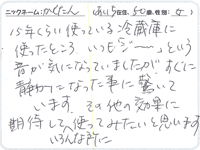 ニックネーム:かくたん (あいち在住、50歳、性別:♂)
15年くらい使っている冷蔵庫に
使ったところ いつも「ジー」という
音が気になっていましたがすぐに
静かになった事に驚いて
います。その他の効果に
期待して使ってみたいと思います
いろんな所に